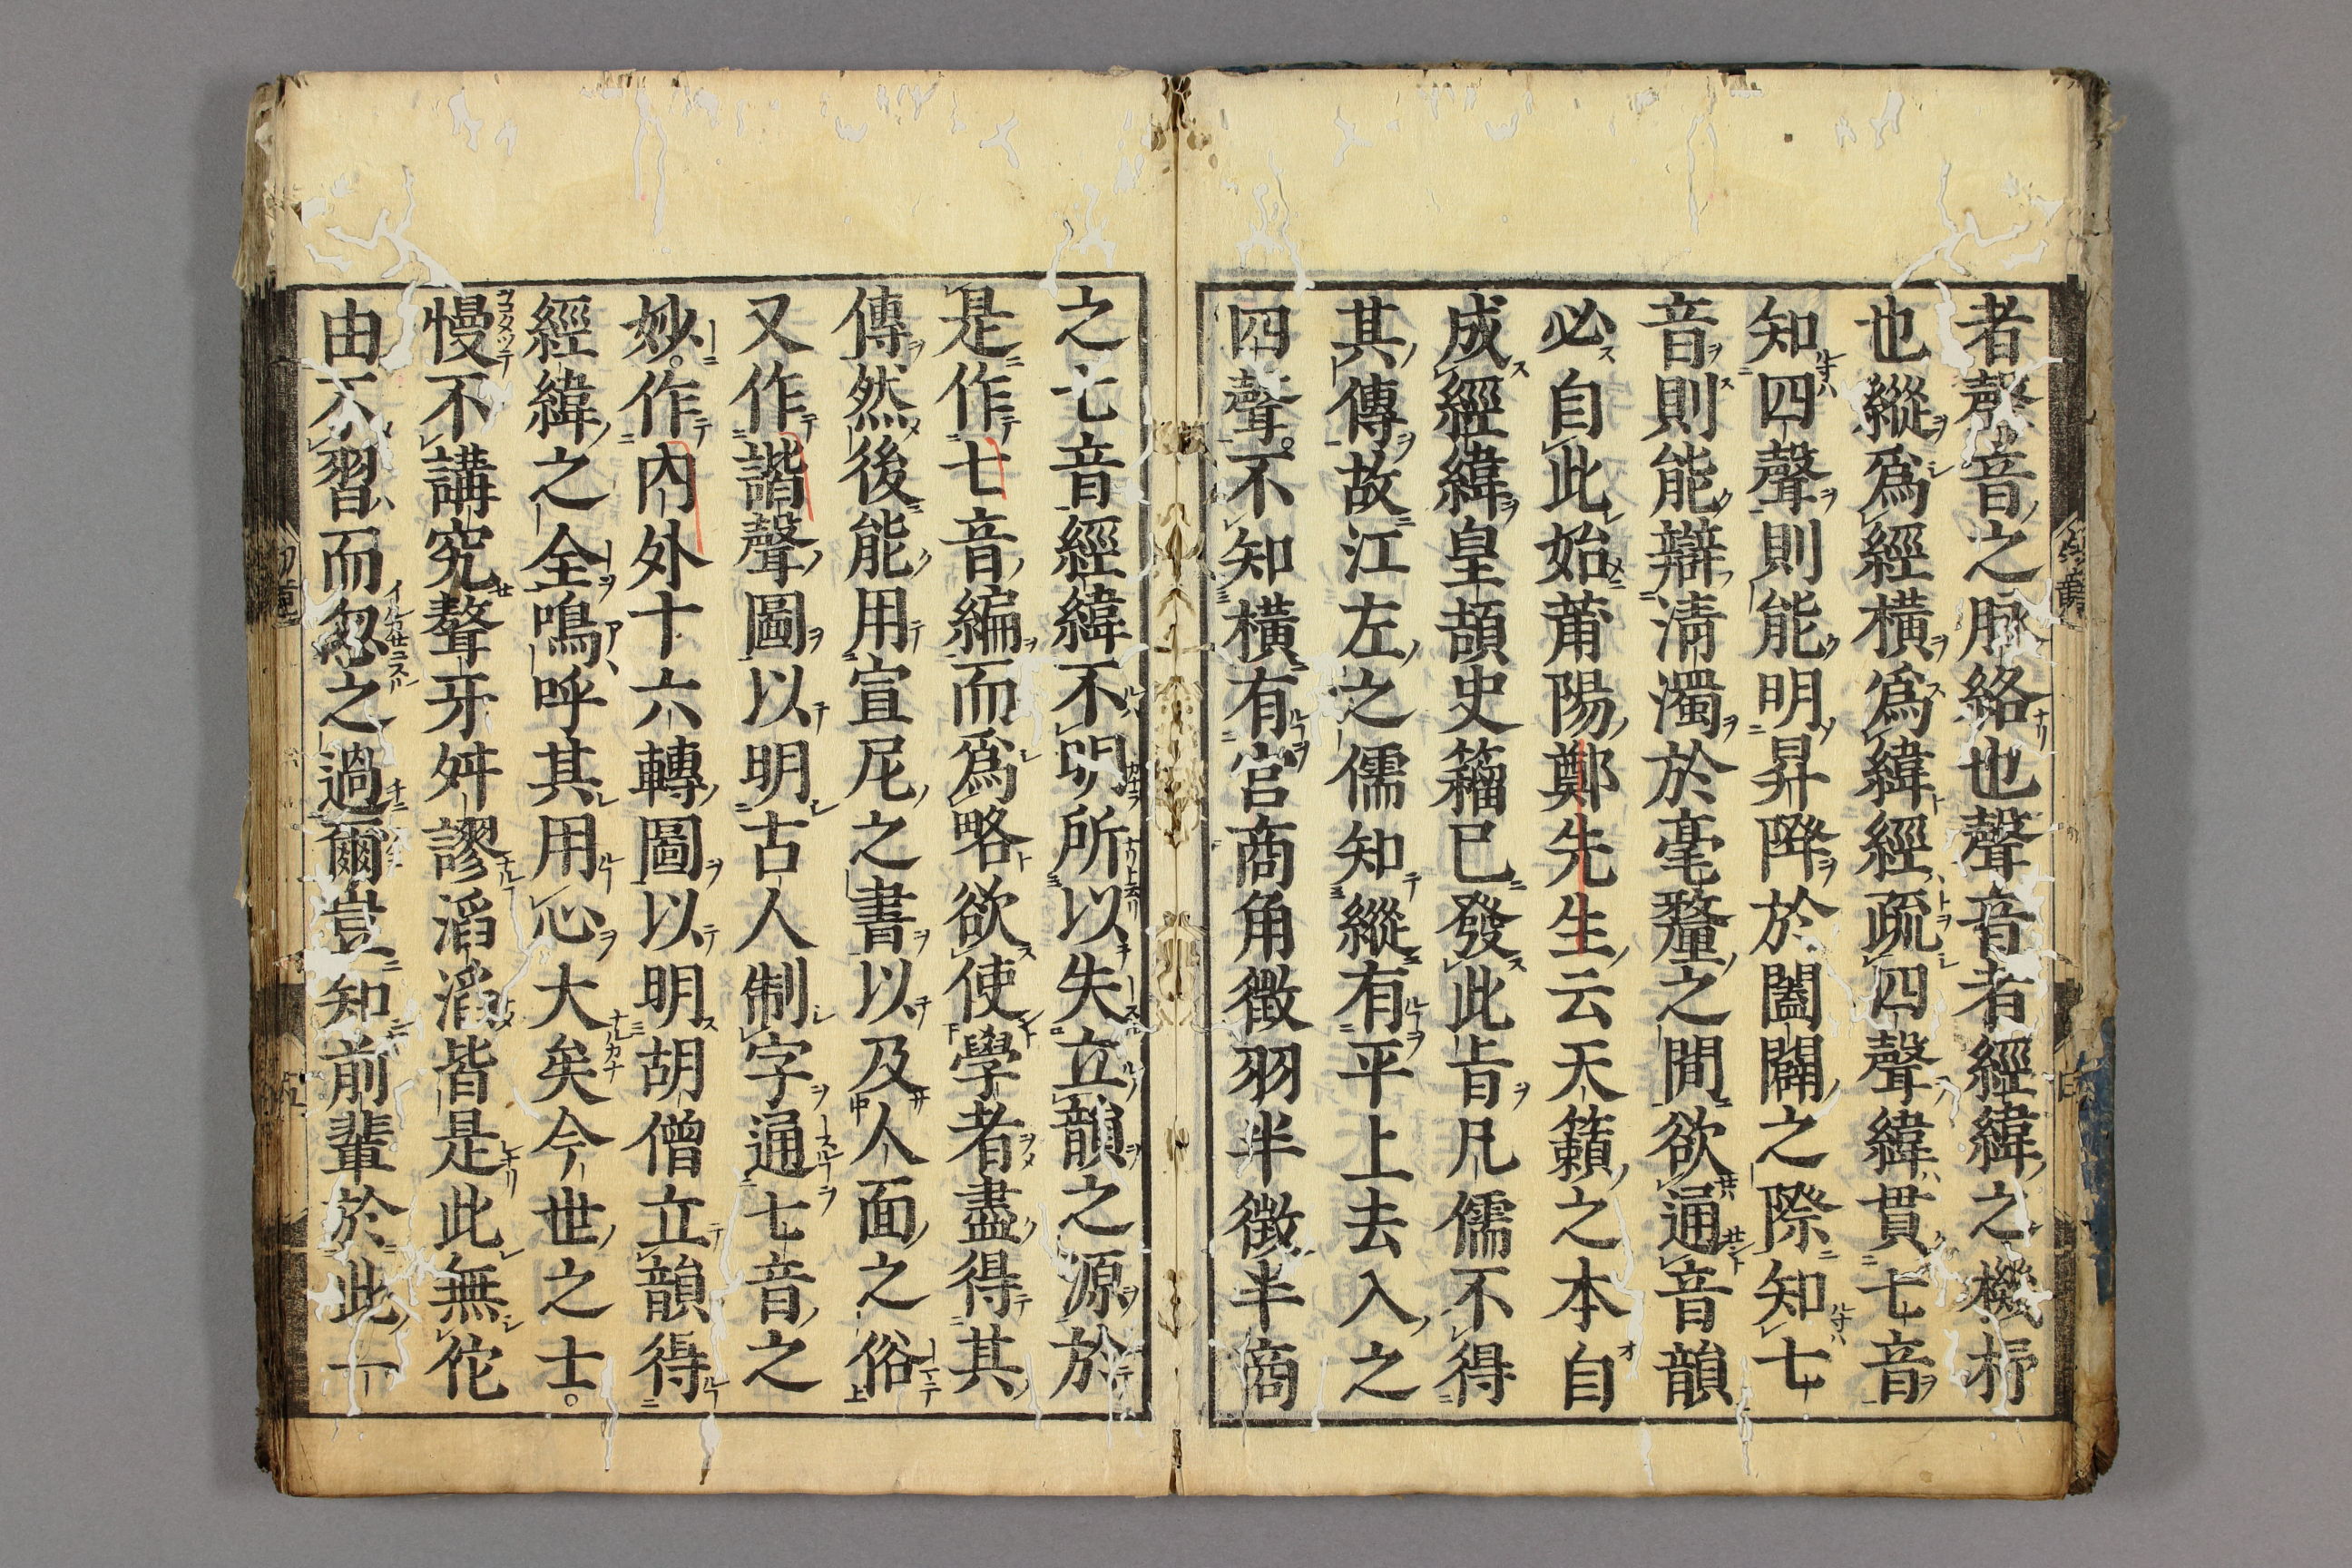 者聲音之脉絡也聲音者經緯之機杼
也縱爲經橫爲緯經疏四聲緯貫七音
知四聲則能明昇降於闔闢之際知七
音則能辯淸濁於毫釐之間欲通音韻
必自此始莆陽鄭先生云天籟之本自
成經緯皇頡史籀已發此旨凡儒不得
其傳故江左之儒知縱有平上去入之
四聲不知橫有宮商角徵羽半徵半商
之七音經緯不明所以失立韻之源於
是作七音編而爲略欲使學者盡得其
傳然後能用宣尼之書以及人面之俗
又作諧聲圖以明古人制字通七音之
妙作內外十六轉圖以明胡僧立韻得
經緯之全嗚呼其用心大矣今世之士
慢不講究聱牙舛謬滔滔皆是此無佗
由不習而忽之過爾豈知前輩於此一